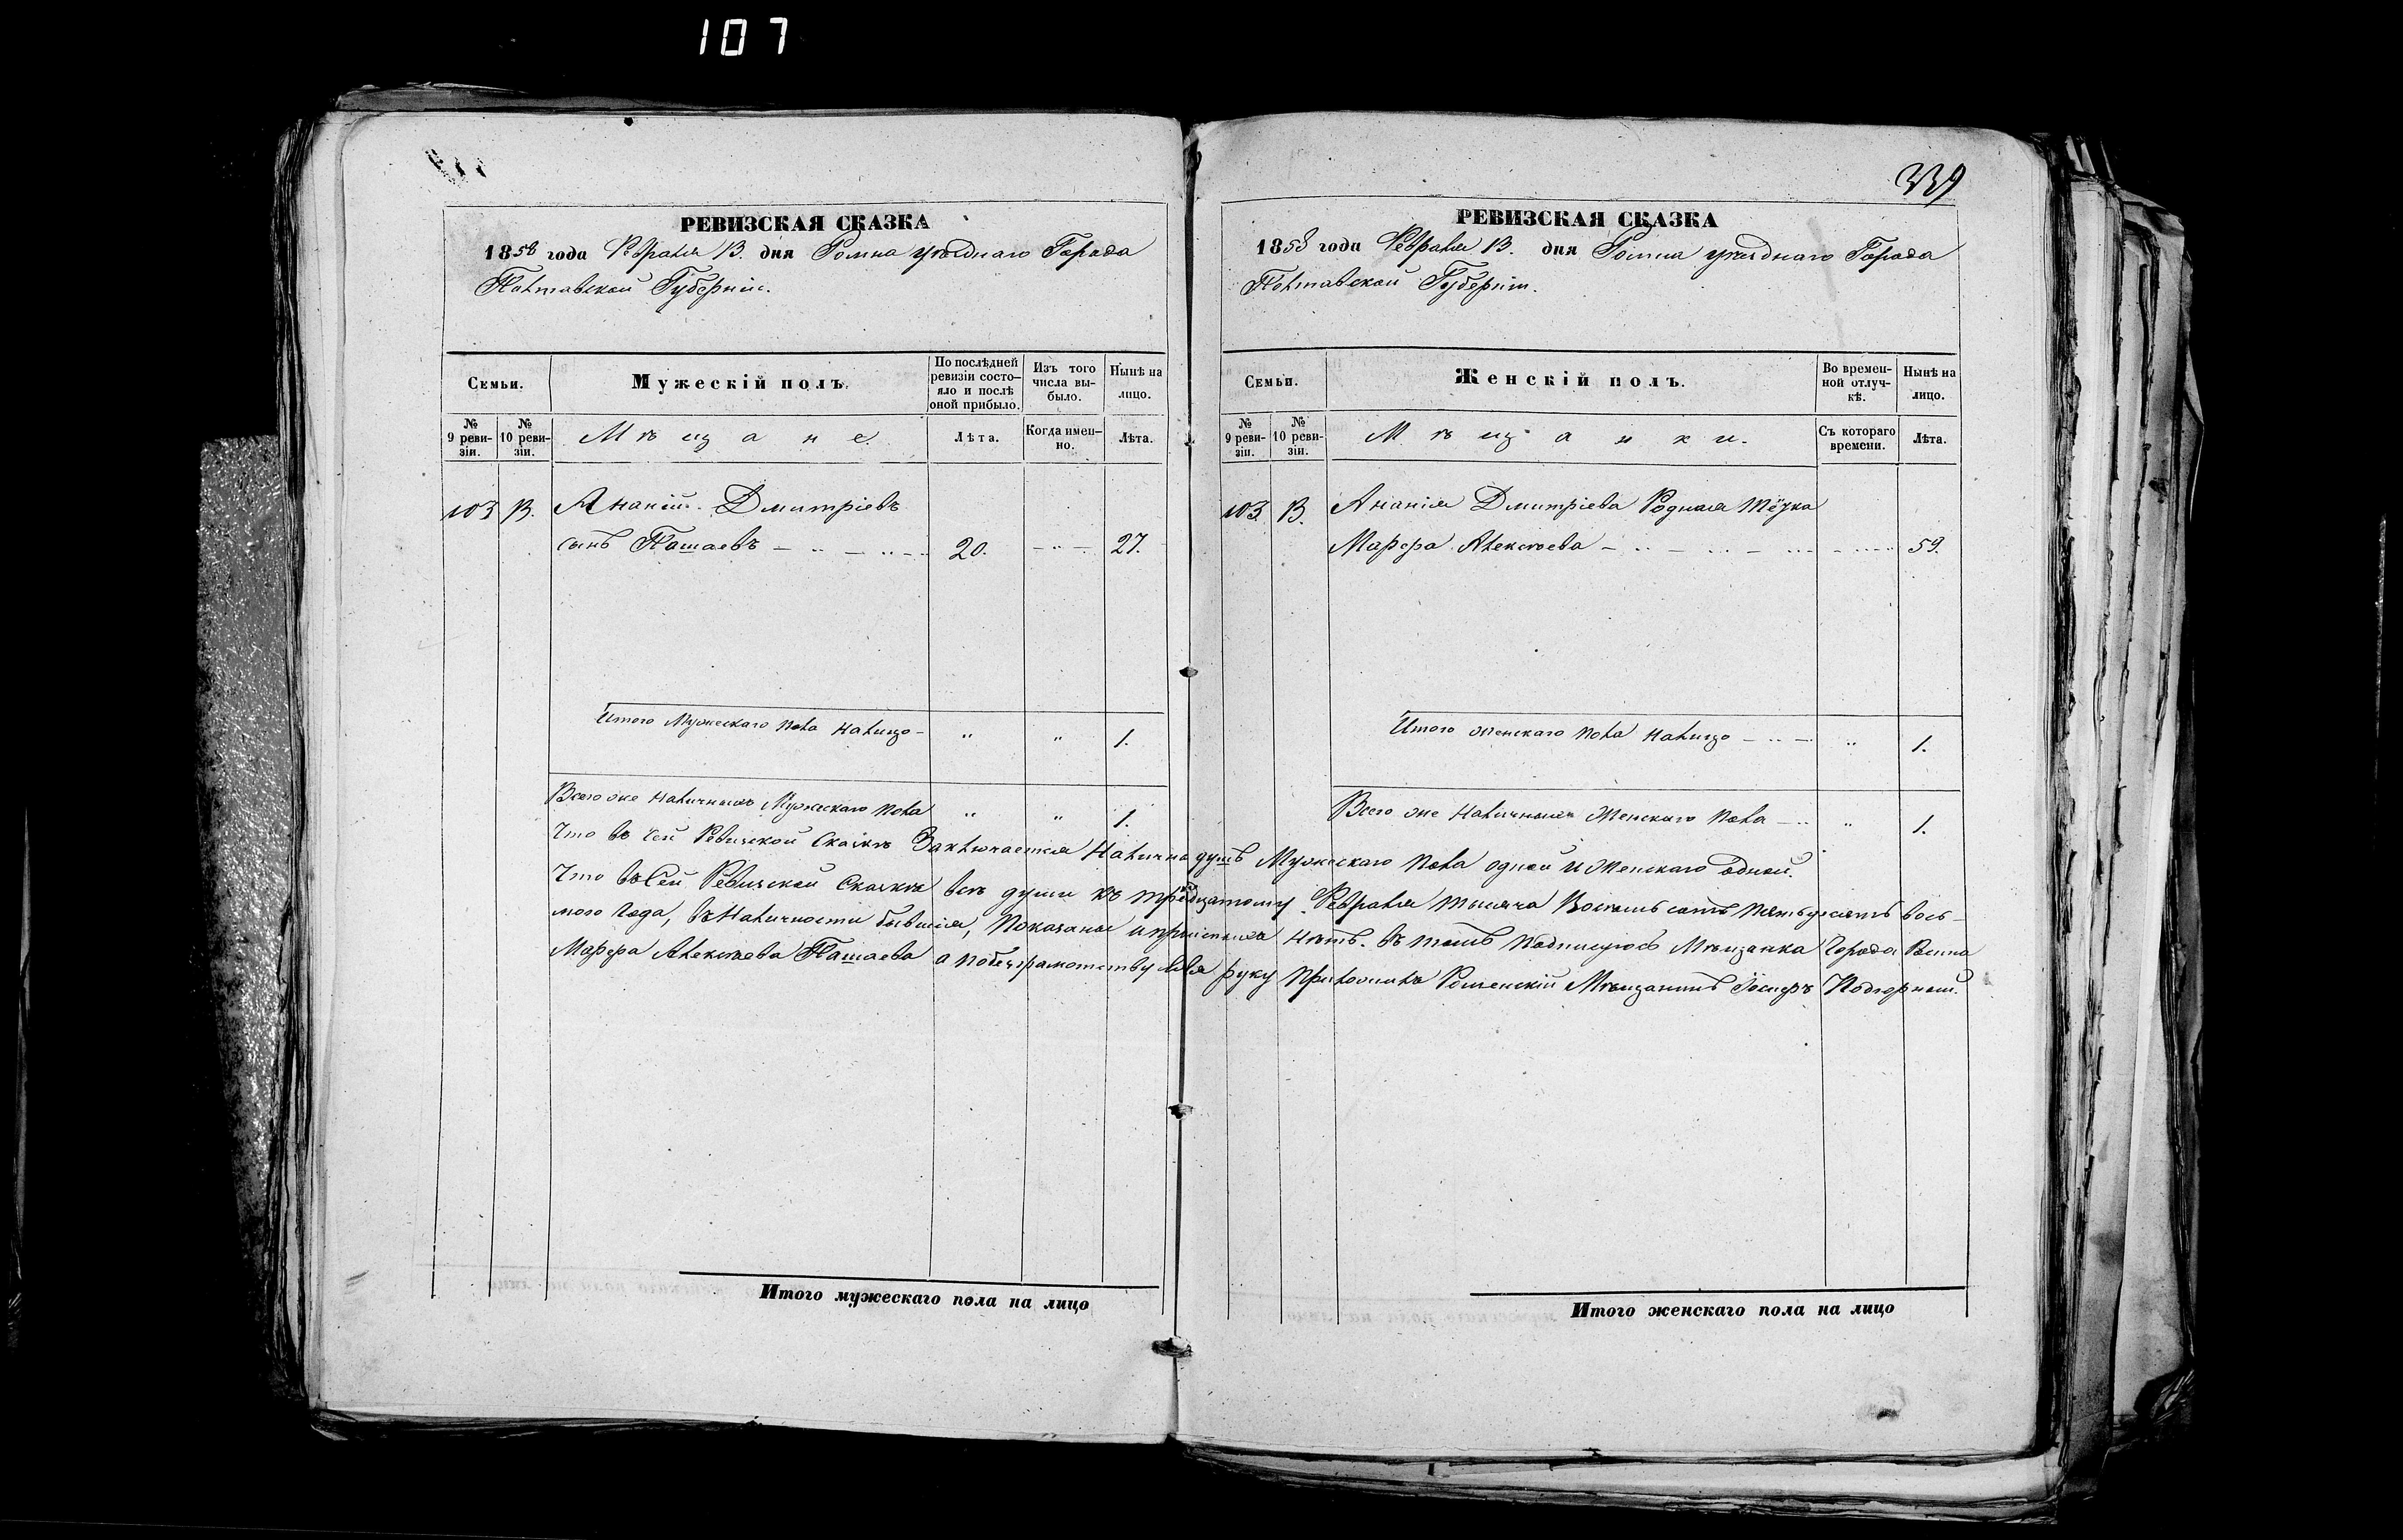 107
РЕВИЗСКАЯ СКАЗКА
1858 года Февраля 13. дня Ромна уѣзднаго Города
Полтавской Губерніи.
Семьи.
Мужескій полъ.
По послѣдней ревизіи состо-
яло и послѣ оной прибыло.
Изъ того числа вы-
было.
Нынѣ на лицо.
№ 9 реви-
зіи.
№ 10 реви-
зіи.
Мѣщане.
Лѣта.
Когда имен-
но.
Лѣта.
103 13. Ананій Дмитріевъ
сынъ Пашаевъ 20. 27.
Итого Мужескаго пола налицо - " " 1.
Всего же наличныхъ Мужескаго пола " " 1.
339
РЕВИЗСКАЯ СКАЗКА
1858 года Февраля 13. дня Ромна уѣзднаго Города
Полтавской Губерніи.
Семьи.
Женскій полъ.
Во времен-
ной отлуч-
кѣ.
Нынѣ на лицо.
№ 9 реви-
зіи.
№ 10 реви-
зіи.
Мѣщанки.
Съ котораго времени.
Лѣта.
103. 13. Ананія Дмитріева Родная
Марфа Алексѣева 59.
Итого женскаго пола налицо " 1.
Всего же наличныхъ Женскаго пола " 1.
Что въ сей Ревизской Сказкѣ Заключается Налично душъ Мужескаго пола одной и Женскаго одной.
Что въ Сей Ревизской Сказкѣ всѣ души къ Февраля тысяча Восемьсотъ пятьдесятъ вось-
мого года, въ Наличности бывшія, Показаны и нѣтъ. въ томъ подписуюсь Мѣщанка города Ромна
Марфа Алексѣева Пашаева а руку приложилъ Роменскій Мѣщанинъ Іосифъ Подгорный.
Итого мужескаго пола на лицо
Итого женскаго пола на лицо